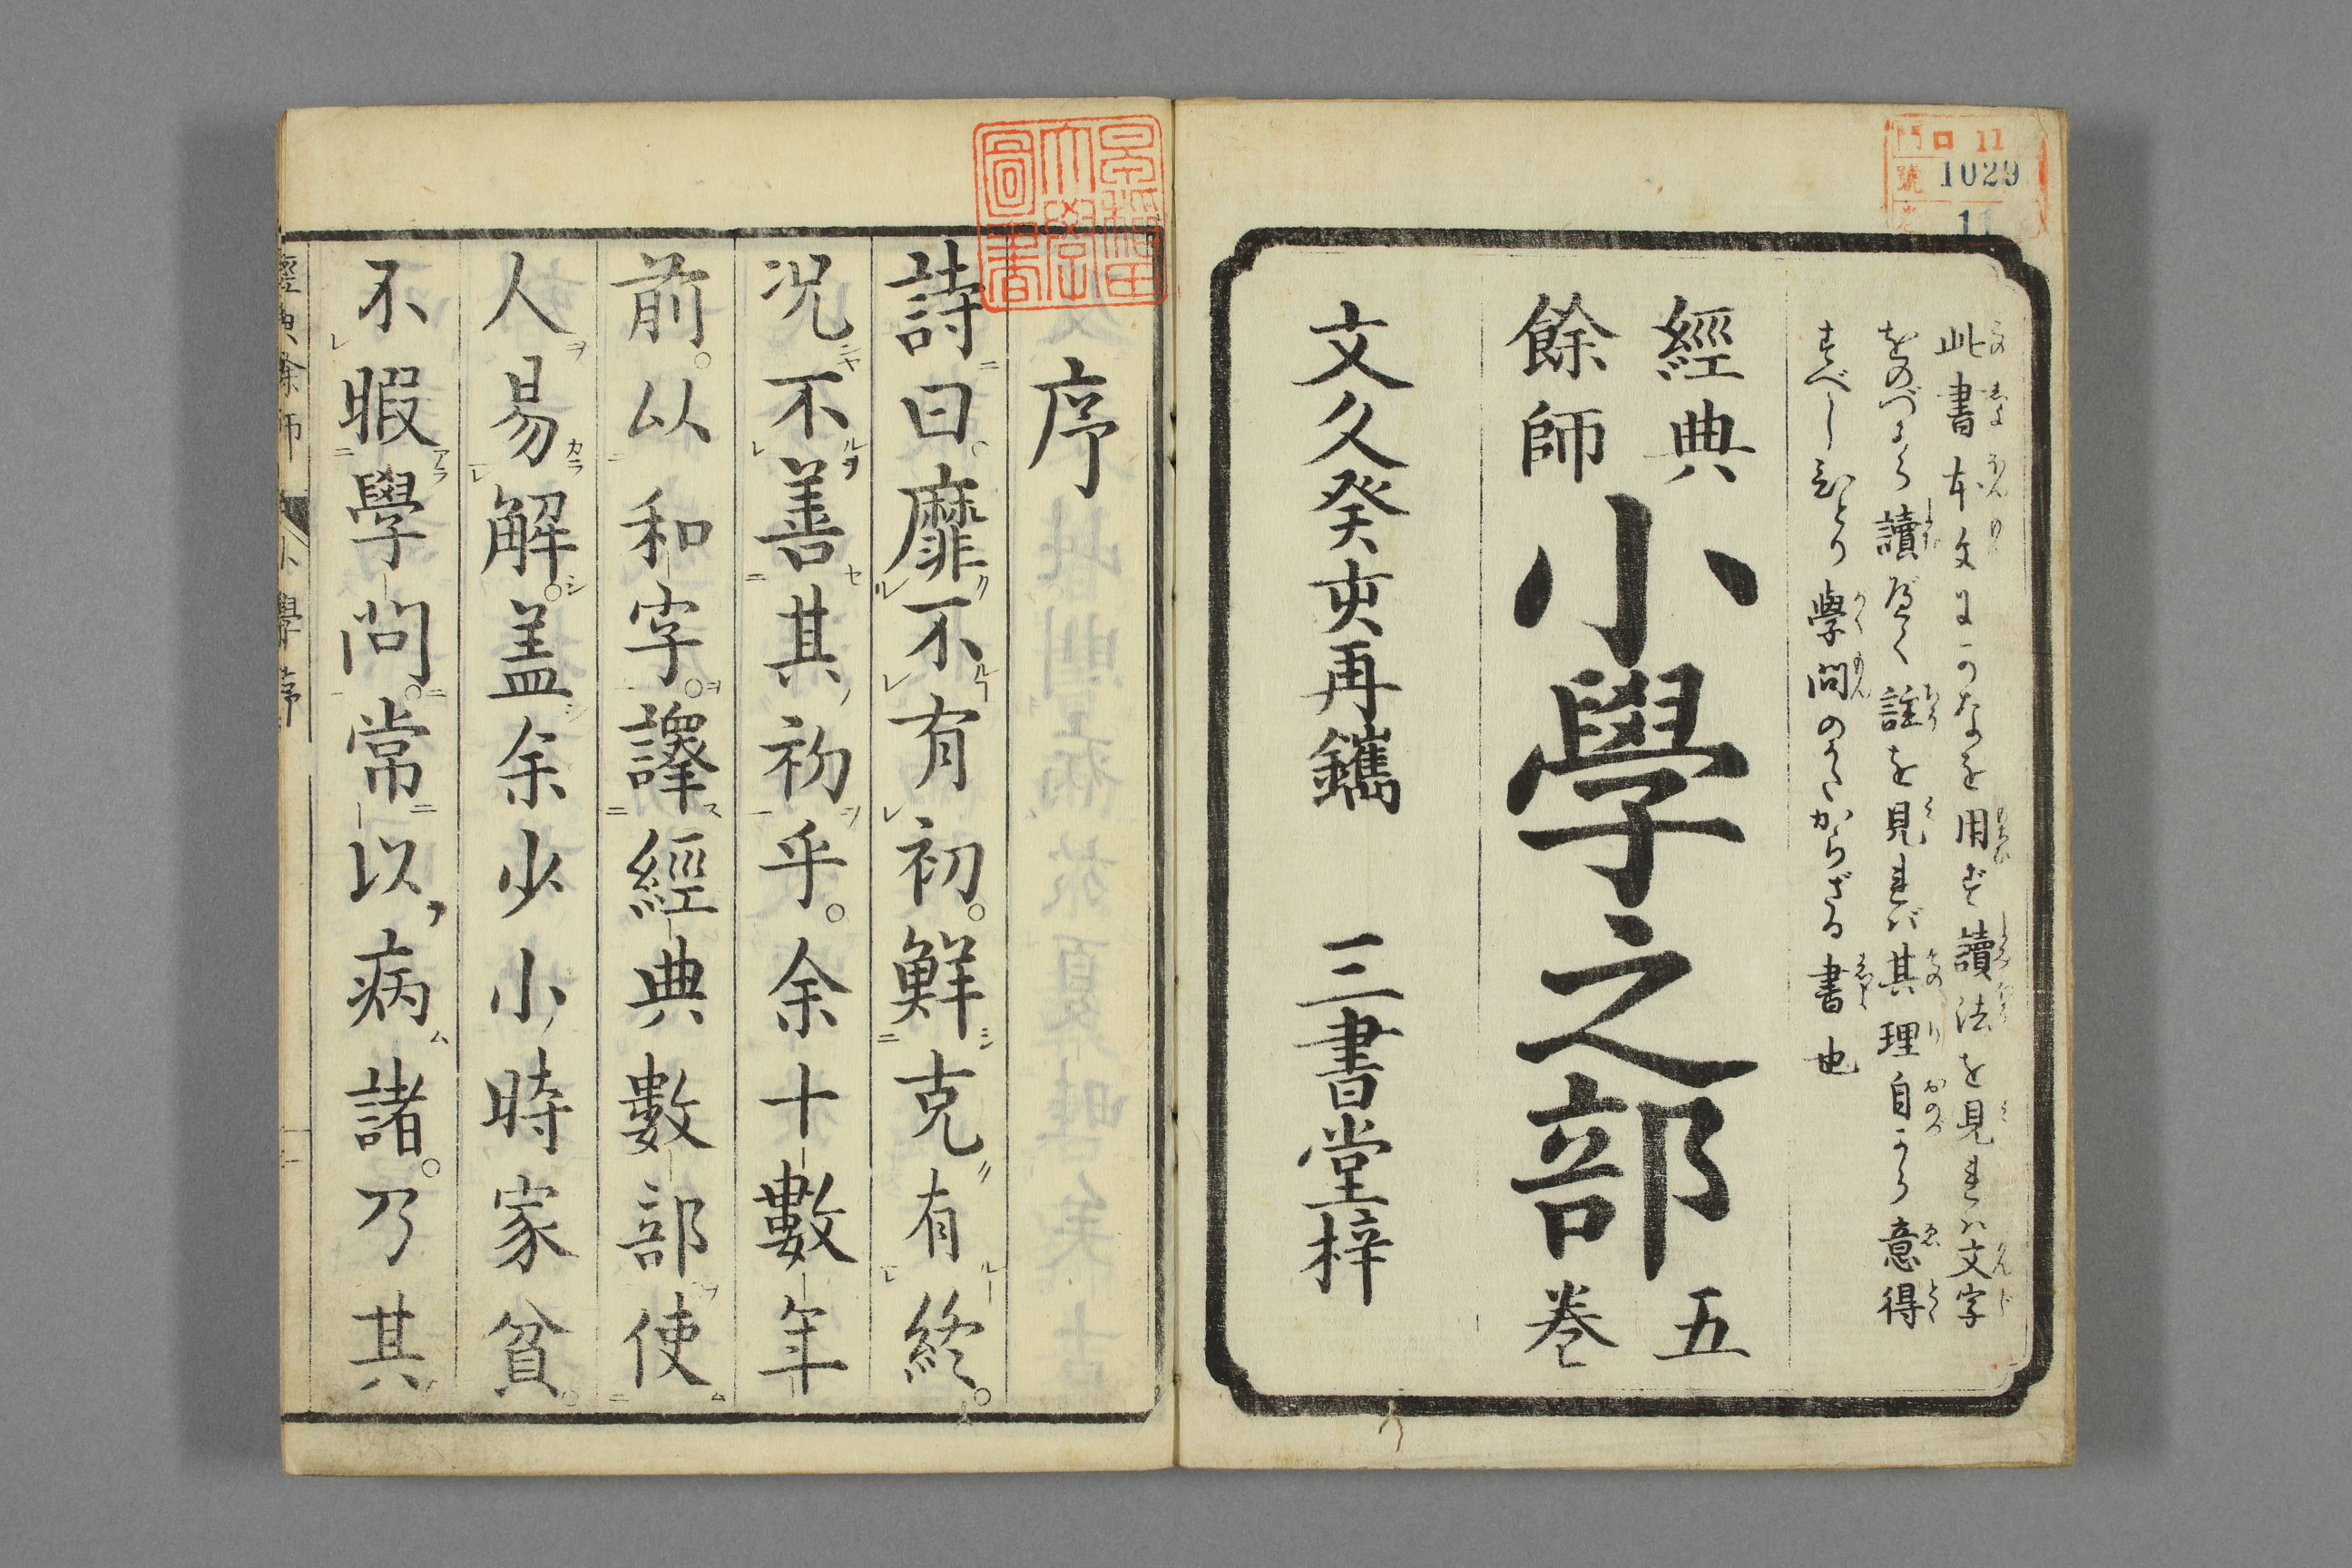 門 ロ 11
號 1029
卷 11
此書本文にかなを用ず讀法を見れハ文字
をのづから讀易く註を見れバ其理自から意得
すべしひとり學問のうたがらざる書也
經典
餘師
小學之部
五
巻
文久癸亥再鐫 三書堂梓
早稲田
大學
圖書
序
詩曰靡不有初。鮮克有終。
况不善其初乎。余十數年
前。以和字。譯經典數部使
人易解。盖余少小時家貧。
不暇學問。常以病諸。乃其
經典餘師 小學序